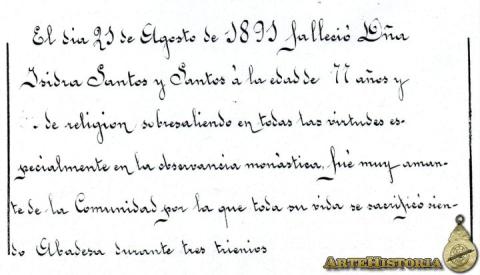 El dia 21 de Agosto de 1891 falleció Dña
Isidra Santos y Santos à la edad de 77 años y
. . de religion, sobresaliendo en todas las virtudes es-
pecialmente en la observancia monàstica, fué muy aman-
te de la Comunidad por la que toda su vida se sacrificó sien-
do Abadesa durante tres trienios
ARTEHISTORIA